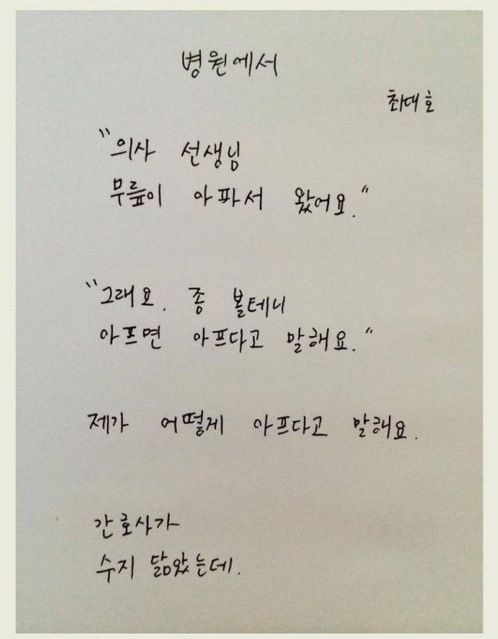 병원에서
최대호
"의사 선생님
무릎이 아파서 왔어요."
"그래요. 좀 볼테니
아프면 아프다고 말해요."
제가 어떻게 아프다고 말해요.
간호사가
수지 닮았는데.